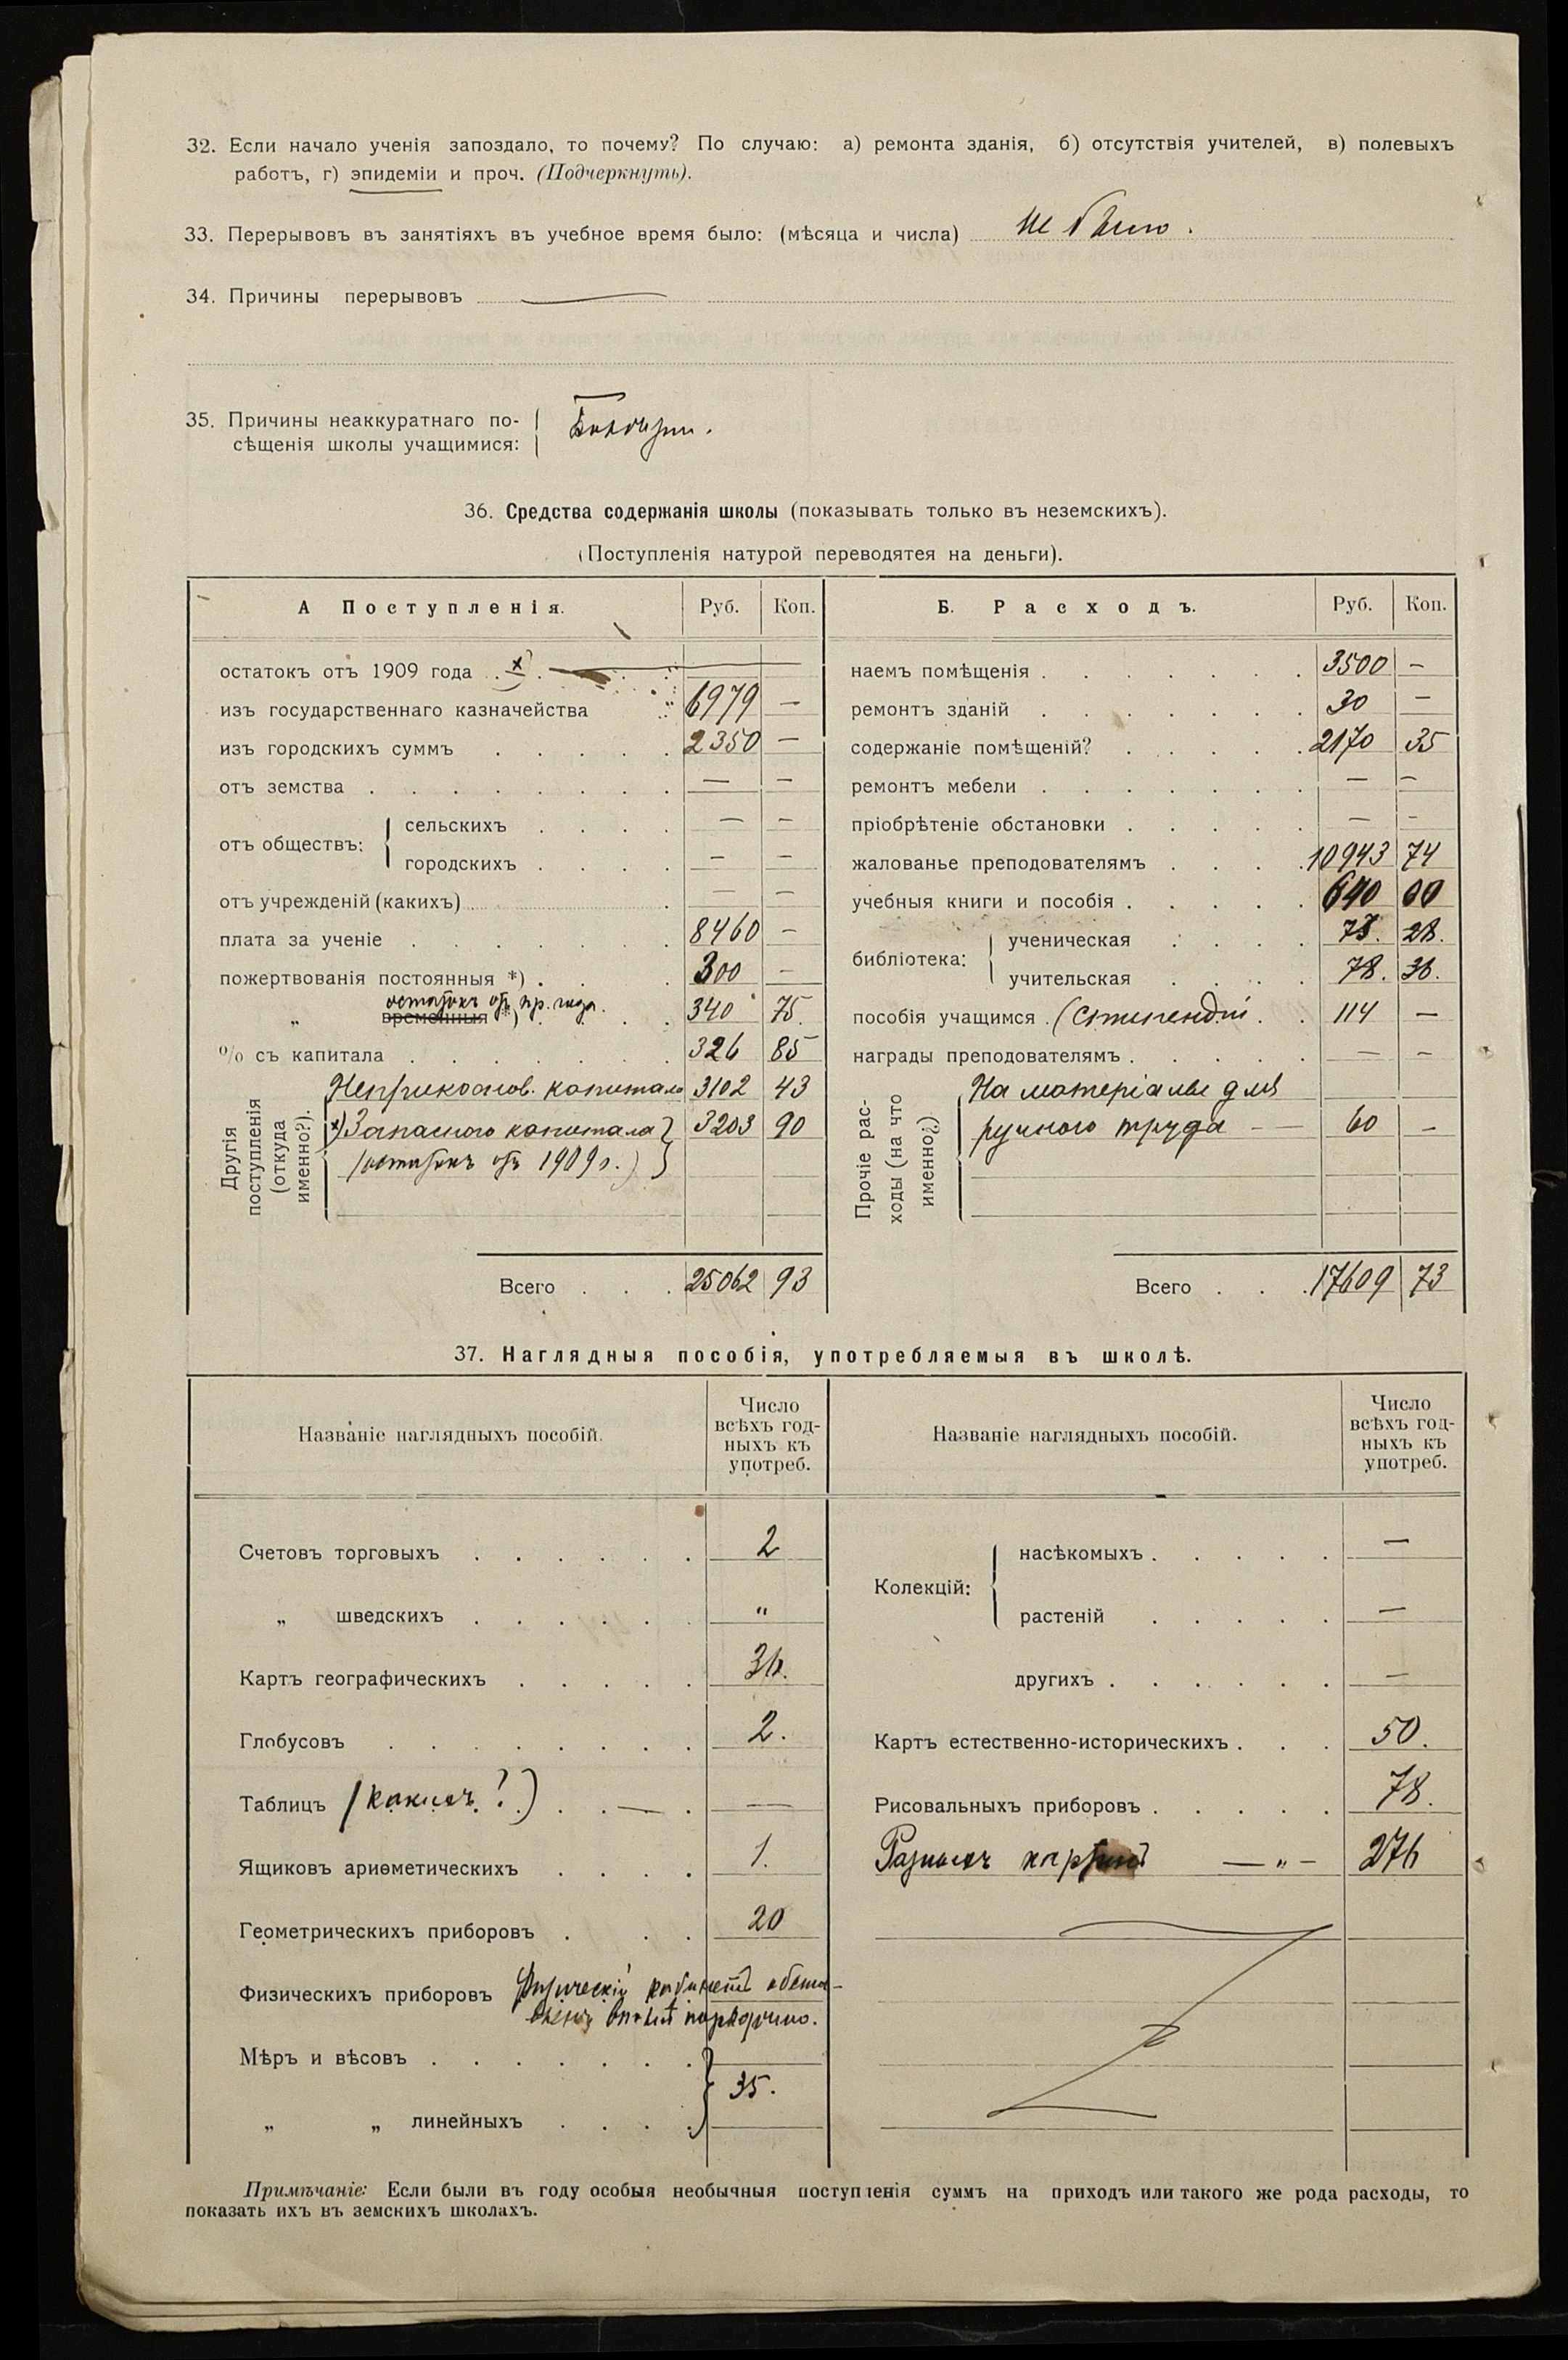 32. Если начало ученія запоздало, то почему? По случаю: а) ремонта зданія, б) отсутствія учителей, в) полевыхъ
работъ, г) эпидеміи и проч. (Подчеркнуть).
33. Перерывовъ въ занятіяхъ въ учебное время было: (мѣсяца и числа) не было.
34. Причины перерывовъ —
35. Причины неаккуратнаго по-
сѣщенія школы учащимися: Болѣзни.
36. Средства содержанія школы (показывать только въ неземскихъ).
(Поступленія натурой переводятея на деньги).
А Поступленія. Руб. Коп. Б. Расходъ. Руб. Коп.
остатокъ отъ 1909 года х) — наемъ помѣщенія 3500 —
изъ государственнаго казначейства 6979 — ремонтъ зданій 30 —
изъ городскихъ суммъ 2350 — содержаніе помѣщеній? 2170 35
отъ земства — — ремонтъ мебели — —
отъ обществъ: сельскихъ — — пріобрѣтеніе обстановки — —
городскихъ — — жалованье преподователямъ 10943 74
отъ учрежденій (какихъ) — — учебныя книги и пособія 640 00
плата за ученіе 8460 — библіотека: ученическая 73. 28.
пожертвованія постоянныя *) 300 — учительская 78. 36.
остатокъ отъ пр. года.
„ временныя *) 340 75. пособія учащимся (Стипендіи 114 —
% съ капитала 326 85 награды преподователямъ — —
Другія поступленія (откуда именно?). Неприкоснов. капитала 3102 43 Прочіе рас-ходы (на что именно¿) На матеріалы для
х) Запаснаго капитала 3203 90 ручного труда — 60 —
(остатокъ отъ 1909 г.)
Всего 25062 93 Всего 17609 73
37. Наглядныя пособія, употребляемыя въ школѣ.
Названіе наглядныхъ пособій. Число всѣхъ год-ныхъ къ употреб. Названіе наглядныхъ пособій. Число всѣхъ год-ныхъ къ употреб.
Счетовъ торговыхъ 2 Колекцій: насѣкомыхъ —
„ шведскихъ „ растеній —
Картъ географическихъ 36. другихъ —
Глобусовъ 2. Картъ естественно-историческихъ 50.
Таблицъ (какихъ?) — — Рисовальныхъ приборовъ 78.
Ящиковъ ариѳметическихъ 1. Разныхъ картинъ — „ — 276
Геометрическихъ приборовъ 20
Физическихъ приборовъ Физическій кабинетъ обста-
вленъ вполнѣ порядочно.
Мѣръ и вѣсовъ 35.
„ „ линейныхъ
Примѣчаніе: Если были въ году особыя необычныя поступленія суммъ на приходъ или такого же рода расходы, то
показать ихъ въ земскихъ школахъ.